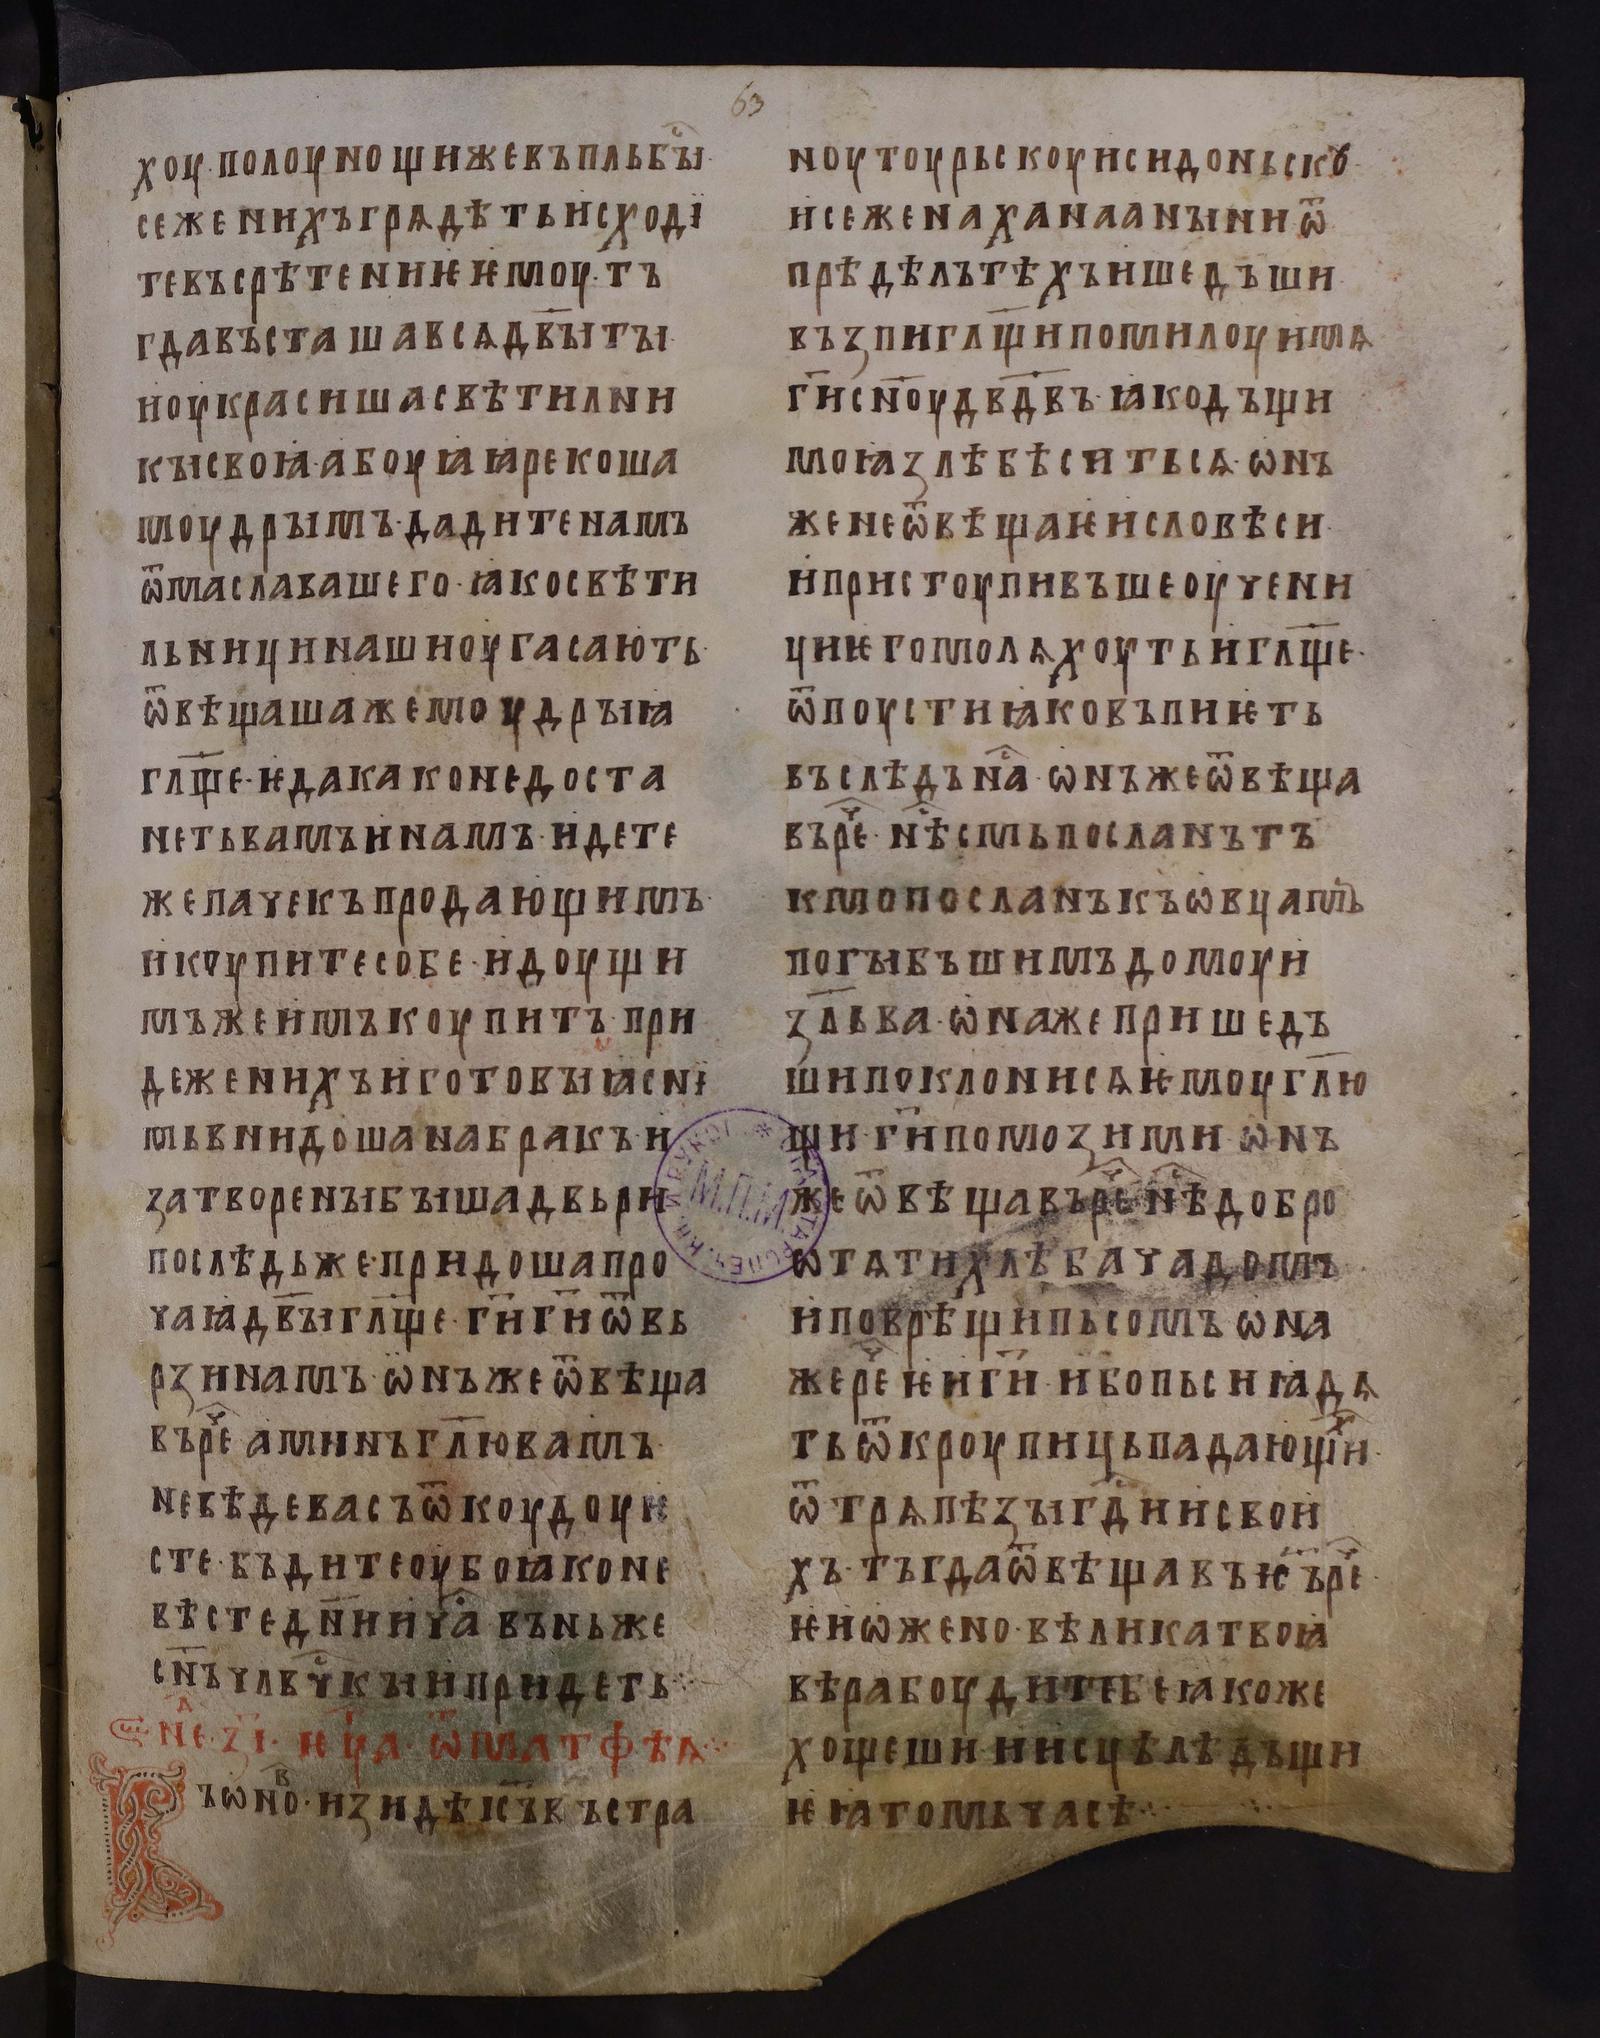 63
хоу·полоу нощи же въпль бы҇
се женихъ грѧдѣть исході
те въ срѣтениѥ ѥмоу·тъ
гда въсташа всѧ дв҃ы ты
и оукрасиша свѣтилни
кы своꙗ·а боуꙗꙗ рекоша
моудрымъ·дадите намъ
ѿ масла вашего·ꙗко свѣти
льници наши оугасають·
ѿвѣщаша же моудрыꙗ
гл҃ще·ѥда како не доста
неть вамъ и намъ·идете
же паче къ продающимъ·
и коупите собе·идоущи
мъ же имъ коупитъ·при
де женихъ и готовыꙗ с ні
мь внидоша на бракъ·и
затворены быша двьри
послѣдь же·придоша про
чаꙗ дв҃ы гл҃ще·г҃и г҃и ѿвь
рзи намъ·ѡнъ же ѿвѣща
въ рⷱ҇е аминъ гл҃ю вамъ·
не вѣде васъ ѿкоудоу ѥ
сте·бъдите оубо ꙗко не
вѣсте дн҃и ни чⷭ҇а въ ньже
сн҃ъ члв҃чⷭ҇кыи придеть
нⷣе·з҃і·ѥⷡ҇а·ѿ матфѣѧ
Въ ѡноⷡ·изиде і҃съ въ стра
ноу тоурьскоу и сидоньскꙋ
и се жена ханааныни ѿ
прѣдѣлъ тѣхъ ишедъши
възпи гл҃щи помилоуи мѧ
г҃и сн҃оу дв҃двъ·ꙗко дъщи
моꙗ злѣ бѣситьсѧ·ѡнъ
же не ѿвѣща ѥи словѣси·
и пристоупивъше оучени
ци ѥго молѧхоуть и гл҃ще·
ѿпоусти ꙗко въпиѥть
въслѣдъ нⷭ҇а·ѡнъ же ѿвѣща
въ рⷱ҇е·нⷭ҇ѣсмь посланъ тъ
кмо посланъ къ ѡвцамъ
погыбъшимъ домоу и
з҃лва·ѡна же пришедъ
ши поклонисѧ ѥмоу гл҃ю
щи·г҃и помози ми·ѡнъ
же ѿвѣщавъ рⷱ҇е нⷭ҇ѣ добро
ѡтѧти хлѣба чадомъ
и поврѣщи пьсомъ ѡна
же рⷱ҇е ѥи г҃и·ибо пьси ꙗдѧ
ть ѿ кроупиць падающиⷯ·
ѿ трѧпѣзы гд҃ии свои
хъ·тъгда ѿвѣщавъ і҃съ рⷱ҇е·
ѥи ѡ жено·вѣлика твоꙗ
вѣра боуди тебе ꙗкоже
хощеши·и исцѣлѣ дъщи
ѥꙗ томь часѣ